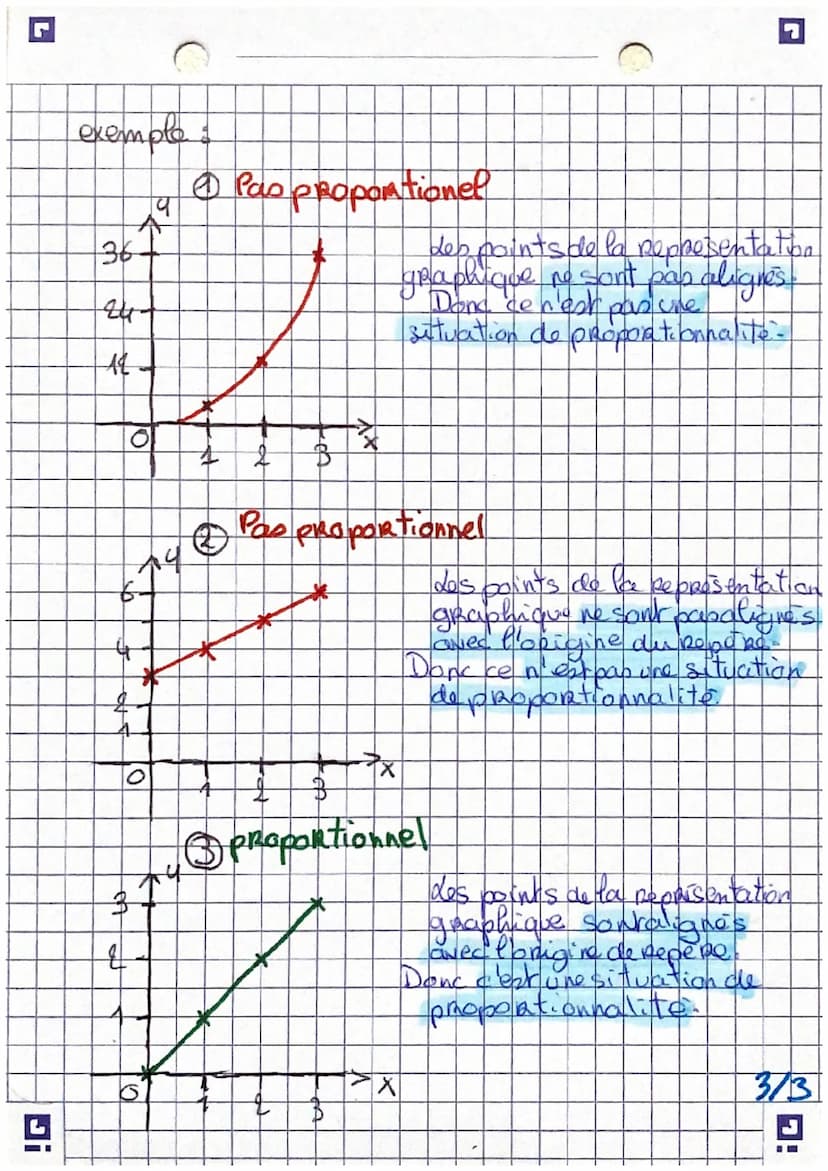 exemple :
① Pas proportionel
y
36
24
12
0
1 2 3
x
Les points de la représentation
graphique ne sont pas alignés.
Donc ce n'est pas une
situation de proportionnalité.
② Pas proportionnel
y
6
4
2
1
0
1 2 3
x
Les points de la représentation
graphique ne sont pas alignés
avec l'origine du repère.
Donc ce n'est pas une situation
de proportionnalité.
③ proportionnel
y
3
2
1
0
1 2 3
x
Les points de la représentation
graphique sont alignés
avec l'origine de repère.
Donc c'est une situation de
proportionnalité.
3/3